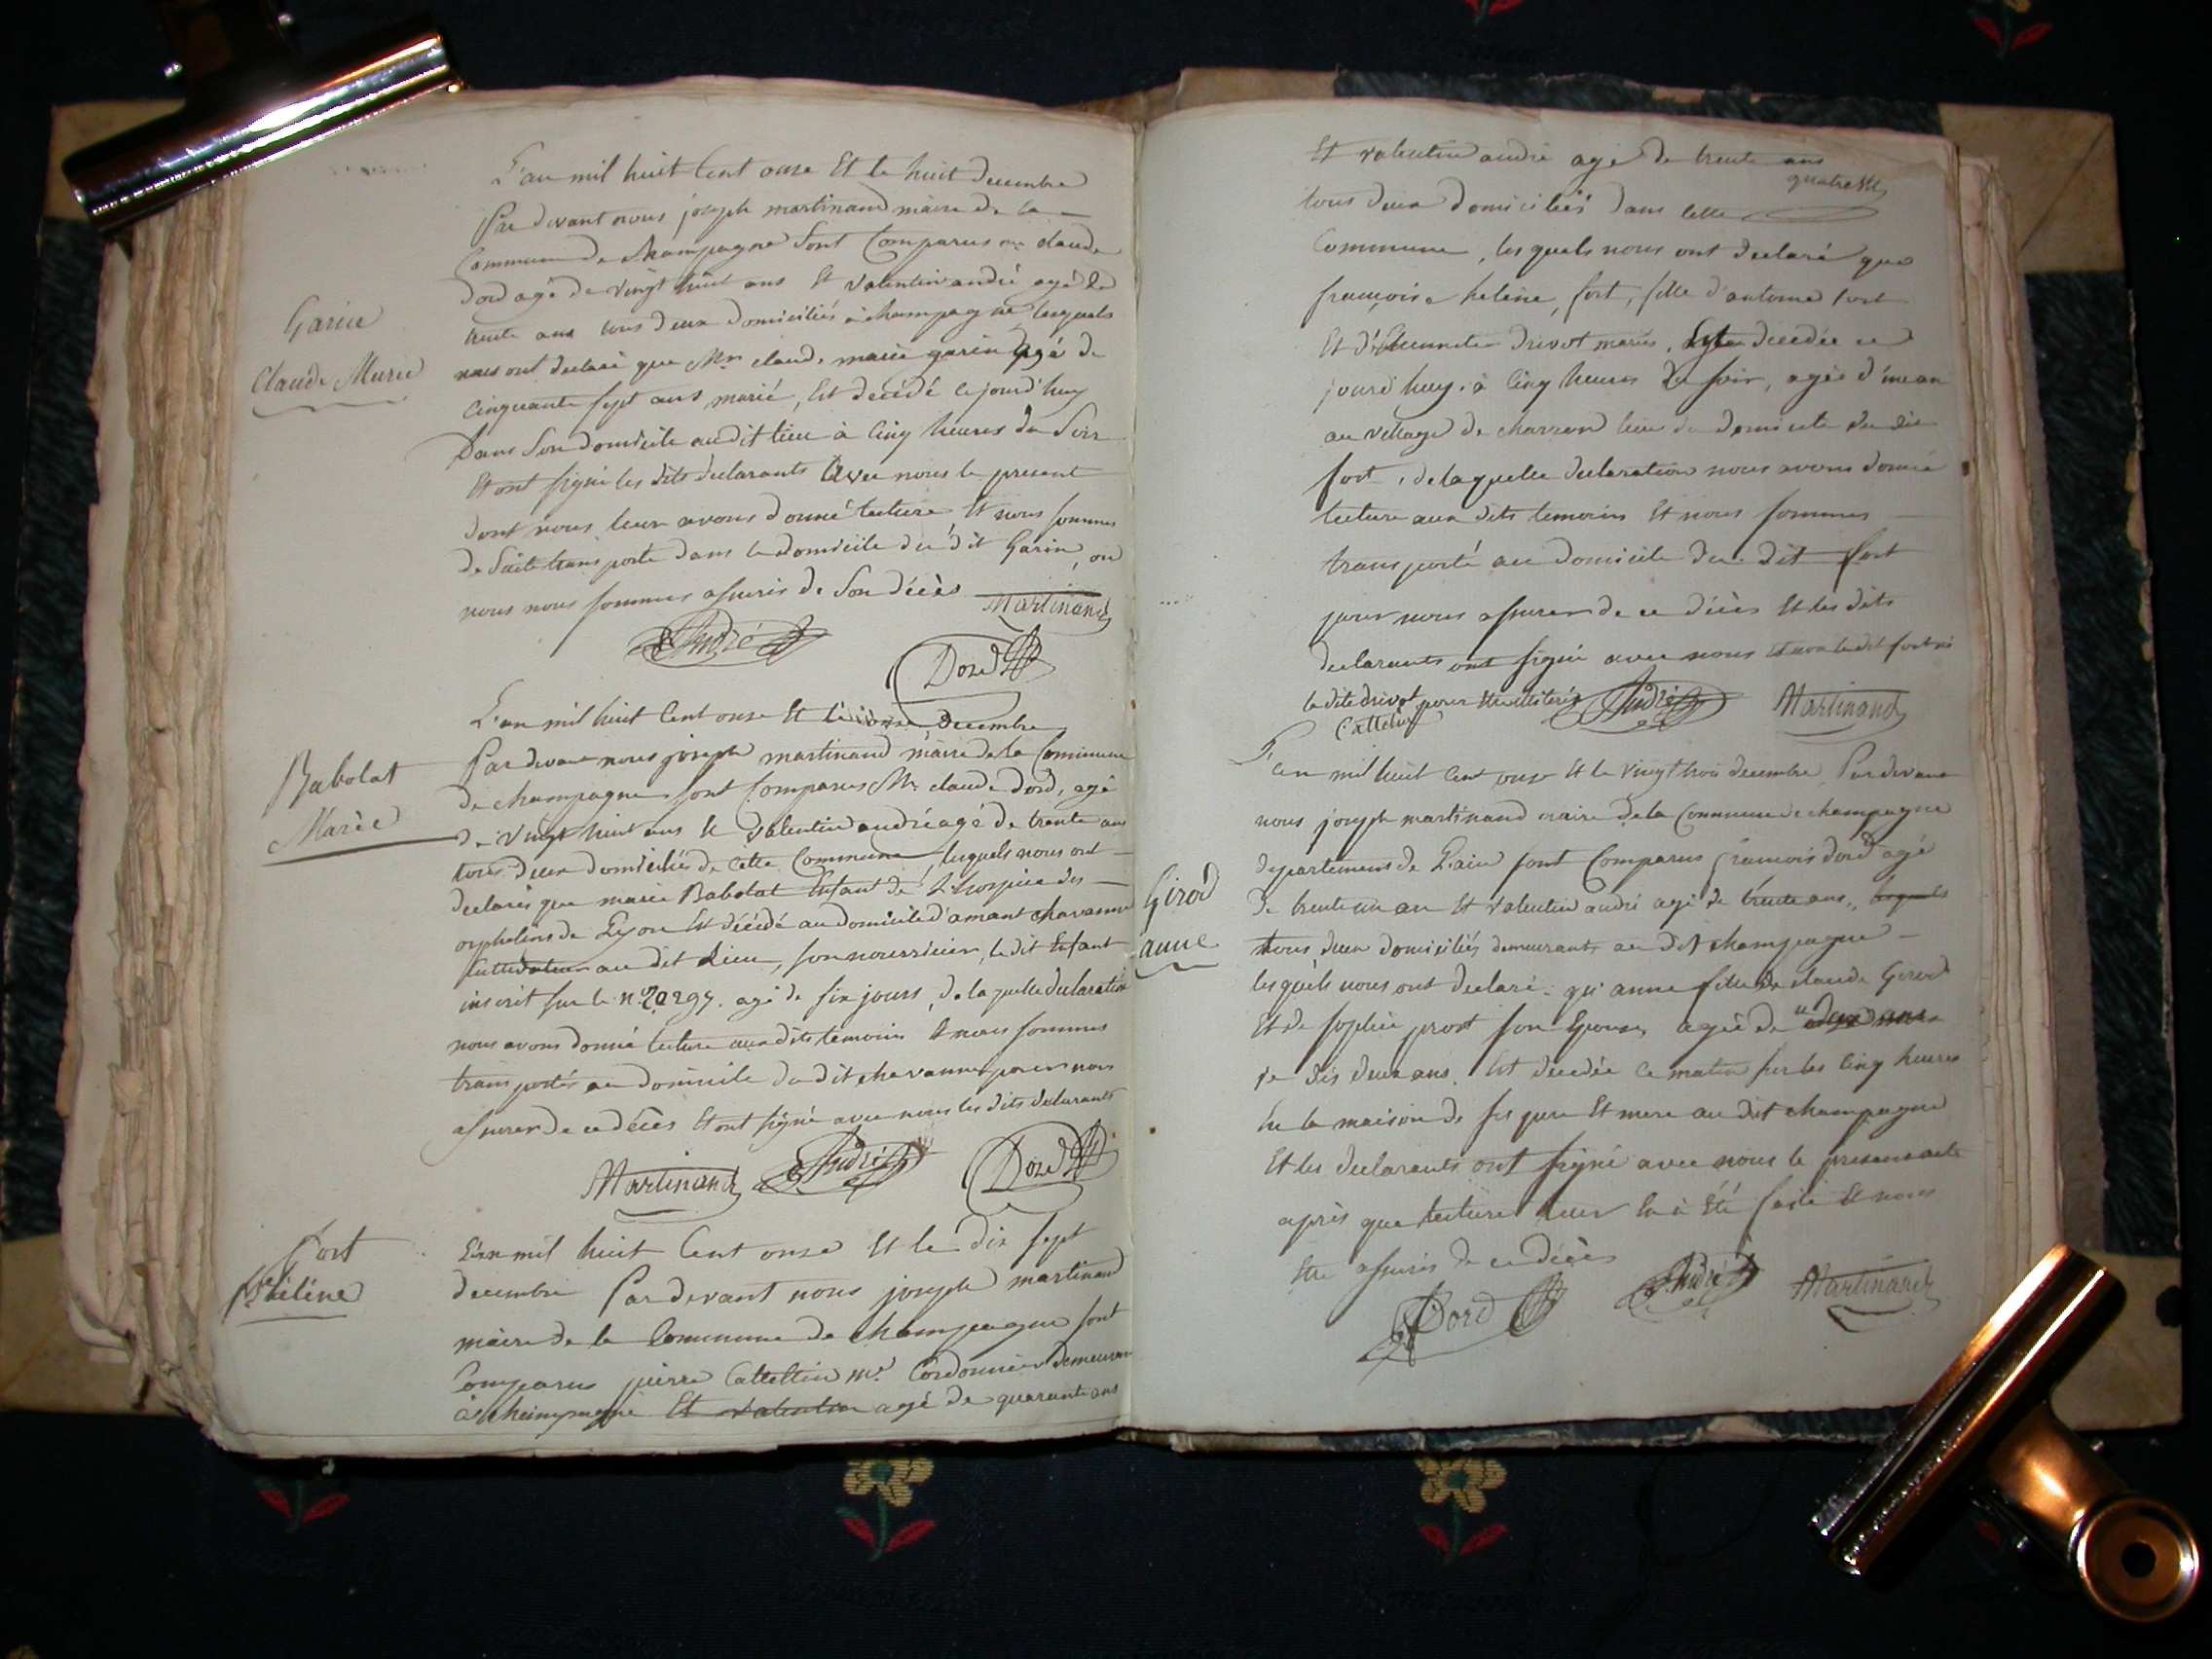 L'an mil huit Cent onse Et le huit decembre
Par devant nous joseph martinand maire de la
Commune de Champagne Sont Comparus mr claude
dord agé de vingt huit ans Et valentin andré agé de
trente ans tous deux domiciliés a champagne lesquels
nous ont declaré que Mr. claude marie garin agé de
Cinquante sept ans marié, Est decédé ce jourd'huy
Dans Son domicile audit lieu à Cinq heures du Soir
Et ont signé les dits declarants avec nous le present
dont nous leur avons donné lecture Et nous sommes
de Suite transporté dans le domicile du dit Garin, ou
nous nous sommes assurés de Son décès Martinand
André
Dord
Garin
Claude Marie
L'an mil huit Cent onse Et le onse decembre
Par devant nous joseph martinand maire de la Commune
de champagne sont Comparus Mr. claude Dord, agé
de vingt huit ans Et valentin andré agé de trente ans
tous deux domiciliés de cette Commune, lesquels nous ont
declarés que marie Babolat Enfant de L'hospice des
orphelins de Lyon Est décédé au domicile d'amant chavanne
Cultivateur au dit Lieu, son nourricier, le dit Enfant
inscrit sur le n° 20297. agé de six jours, de laquelle declaration
nous avons donné lecture aux dits temoins Et nous sommes
transportés au domicile du dit chavanne pour nous
assurer de ce décès Et ont signé avec nous les dits declarants
Martinand André Dord
Babolat
Marie
L'an mil huit Cent onse Et le dix sept
decembre Par devant nous joseph martinand
maire de la Commune de Champagne sont
Comparus pierre Cattelin md. Cordonnier demeurant
à Champagne Et valentin agé de quarante ans
Fort
hélène
Et valentin andré agé de trente ans
quatre
tous deux domiciliés dans cette
Commune, lesquels nous ont declaré que
françoise helène, fort, fille d'antoine fort
Et d'Etiennette drivot mariés, Est decedée ce
jourd'huy. à Cinq heures du soir, agée d'un an
au village de charron lieu de domicile du dit
fort, de laquelle declaration nous avons donné
lecture aux dits temoins Et nous sommes
transporté au domicile du dit fort
pour nous assurer de ce décès Et les dits
declarants ont signé avec nous Et non le dit fort ni
la dite drivot pour Etre illiterés André Martinand
Cattelin
L'an mil huit Cent onse Et le vingt trois decembre Par devant
nous joseph martinand maire de la Commune de champagne
departement de L'ain sont Comparus françois dord agé
de trente un an Et valentin andré agé de trente ans, lesquels
tous deux domiciliés demeurants au dit champagne
lesquels nous ont declaré qu'anne fille de claude Girod
Et de sophie prost son Epouse, agée de deux ans
de dis deux ans. Est decedée Ce matin sur les Cinq heures
En la maison de ses pere Et mere au dit champagne
Et les declarants ont signé avec nous le present acte
après que lecture Leur En à Eté faite Et nous
Etre assurés de ce décès
Dord André Martinand
Girod
anne